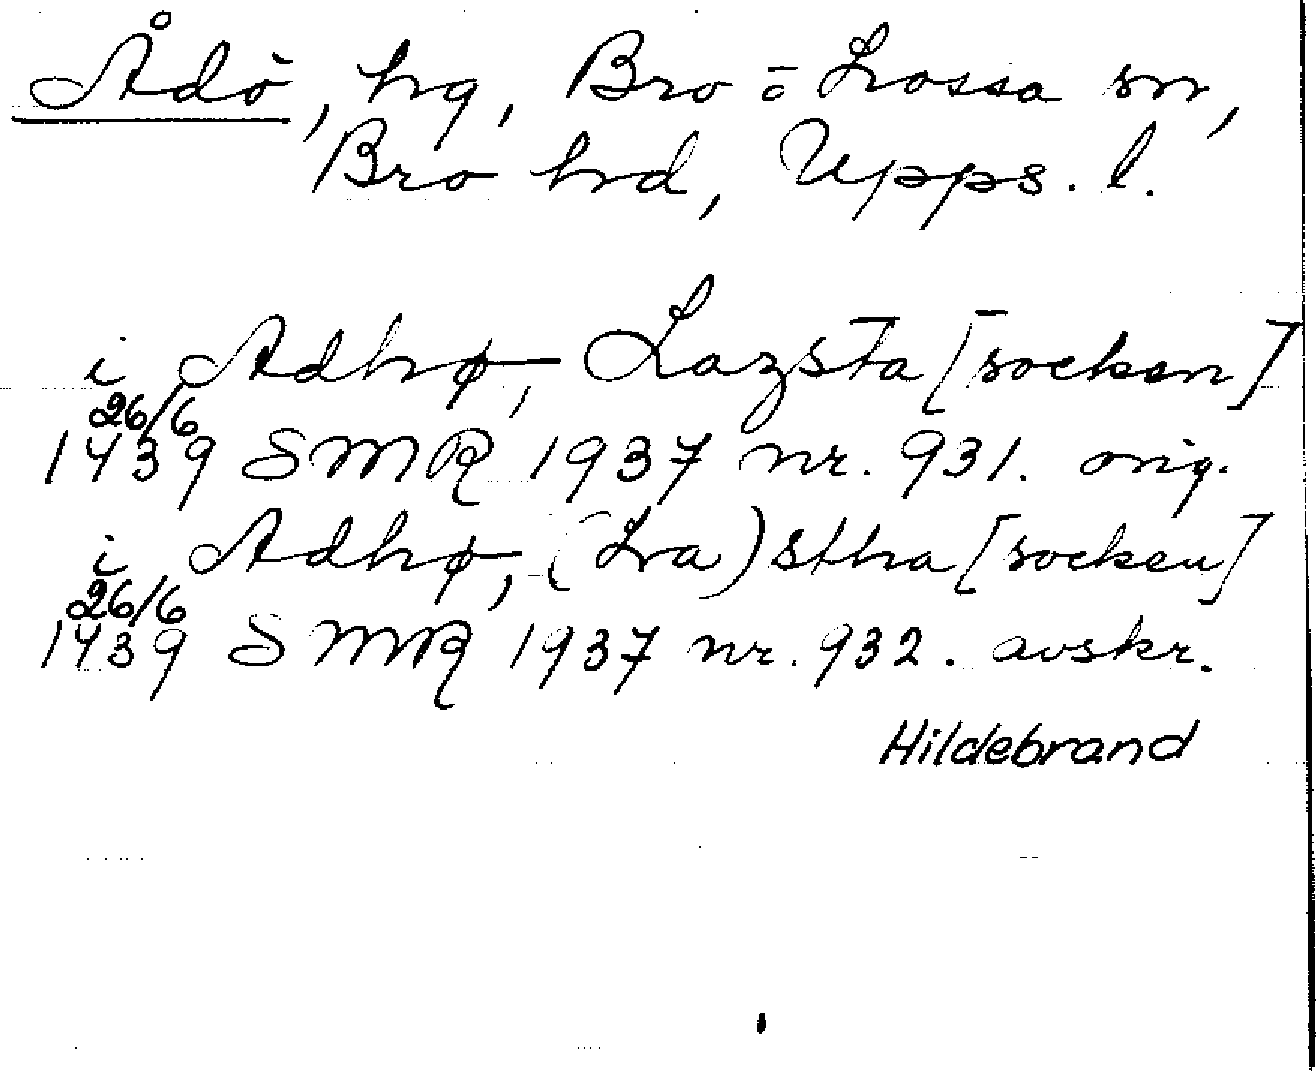 Ådö, hg, Bro o Lossa sn,
Bro hd, Upps. l.
i Adhø, Lazsta [socken]
26/6
1439 SMR 1937 nr. 931. orig.
i Adhø, (La)stha [socken]
26/6
1439 SMR 1937 nr. 932. avskr.
Hildebrand